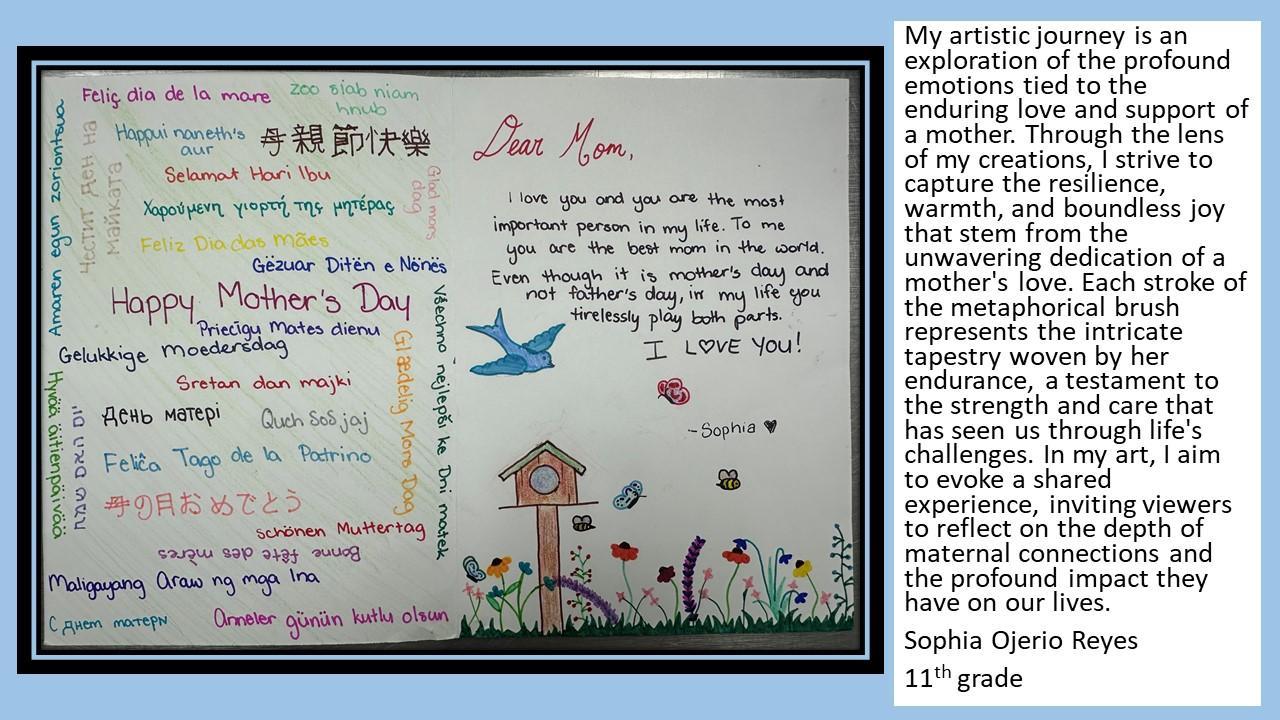 Feliç dia de la mare
zoo siab niam
hnub
Amaren egun zoriontsua
Честит Ден на
майката
Happui naneth's
aur
母親節快樂
Selamat Hari Ibu
Glad mors
dag
Χαρούμενη γιορτή της μητέρας
Feliz Dia das mães
Gëzuar Ditën e Nënës
Happy Mother's Day
Priecīgu Mates dienu
Gelukkige moedersdag
Sretan dan majki
Glædelig Mors Dag
Všechno nejlepší ke Dni matek
Hyvää äitienpäivää
День матері
Quch SoS jaj
Feliĉa Tago de la Patrino
母の日おめでとう
schönen Muttertag
Bonne fête des mères
Maligayang Araw ng mga Ina
С Днем матери
Anneler günün kutlu olsun
Dear Mom,
I love you and you are the most
important person in my life. To me
you are the best mom in the world.
Even though it is mother's day and
not father's day, in my life you
tirelessly play both parts.
I L♡VE YOU!
-Sophia ♥
My artistic journey is an
exploration of the profound
emotions tied to the
enduring love and support of
a mother. Through the lens
of my creations, I strive to
capture the resilience,
warmth, and boundless joy
that stem from the
unwavering dedication of a
mother's love. Each stroke of
the metaphorical brush
represents the intricate
tapestry woven by her
endurance, a testament to
the strength and care that
has seen us through life's
challenges. In my art, I aim
to evoke a shared
experience, inviting viewers
to reflect on the depth of
maternal connections and
the profound impact they
have on our lives.
Sophia Ojerio Reyes
11th grade